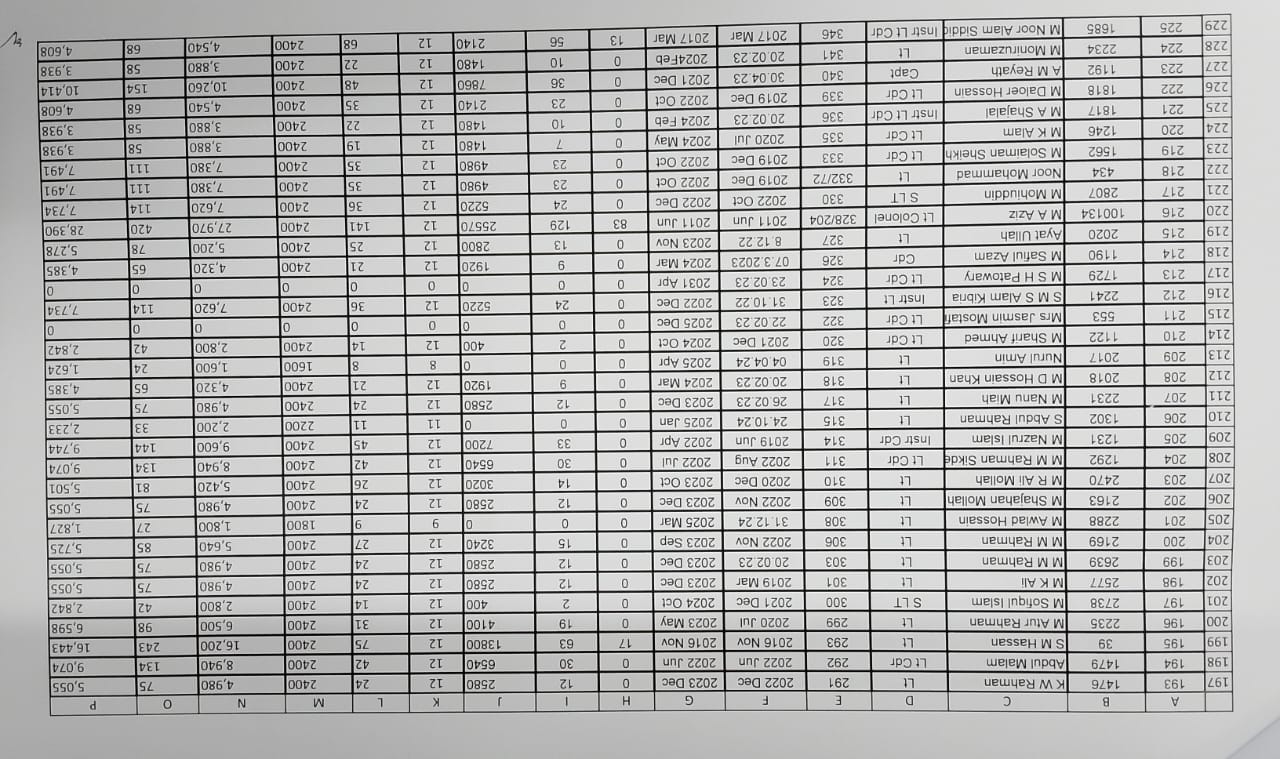 A B C D E F G H I J K L M N O P
197 193 1476 K W Rahman Lt 291 2022 Dec 2023 Dec 0 12 2580 12 24 2400 4,980 75 5,055
198 194 1479 Abdul Malam Lt Cdr 292 2022 Jun 2022 Jun 0 30 6540 12 42 2400 8,940 134 9,074
199 195 39 S M Hassan Lt 293 2016 Nov 2016 Nov 17 63 13800 12 75 2400 16,200 243 16,443
200 196 2235 M Atur Rahman Lt 299 2020 Jul 2023 May 0 19 4100 12 31 2400 6,500 98 6,598
201 197 2738 M Sofiqul Islam S LT 300 2021 Dec 2024 Oct 0 2 400 12 14 2400 2,800 42 2,842
202 198 2577 M K Ali Lt 301 2019 Mar 2023 Dec 0 12 2580 12 24 2400 4,980 75 5,055
203 199 2639 M M Rahman Lt 303 20.02.23 2023 Dec 0 12 2580 12 24 2400 4,980 75 5,055
204 200 2169 M M Rahman Lt 306 2022 Nov 2023 Sep 0 15 3240 12 27 2400 5,640 85 5,725
205 201 2288 M Awlad Hossain Lt 308 31.12.24 2025 Mar 0 0 0 9 9 1800 1,800 27 1,827
206 202 2163 M Shajahan Mollah Lt 309 2022 Nov 2023 Dec 0 12 2580 12 24 2400 4,980 75 5,055
207 203 2470 M R Ali Mollah Lt 310 2020 Dec 2023 Oct 0 14 3020 12 26 2400 5,420 81 5,501
208 204 1292 M M Rahman Sikde Lt Cdr 311 2022 Aug 2022 Jul 0 30 6540 12 42 2400 8,940 134 9,074
209 205 1231 M Nazrul Islam Instr Cdr 314 2019 Jun 2022 Apr 0 33 7200 12 45 2400 9,600 144 9,744
210 206 1302 S Abdul Rahman Lt 315 24.10.24 2025 Jan 0 0 0 11 11 2200 2,200 33 2,233
211 207 2231 M Nanu Miah Lt 317 26.02.23 2023 Dec 0 12 2580 12 24 2400 4,980 75 5,055
212 208 2018 M D Hossain Khan Lt 318 20.02.23 2024 Mar 0 9 1920 12 21 2400 4,320 65 4,385
213 209 2017 Nurul Amin Lt 319 04.04.24 2025 Apr 0 0 0 8 8 1600 1,600 24 1,624
214 210 1122 M Sharif Ahmed Lt Cdr 320 2021 Dec 2024 Oct 0 2 400 12 14 2400 2,800 42 2,842
215 211 553 Mrs Jasmin Mostafi Lt Cdr 322 22.02.23 2025 Dec 0 0 0 0 0 0 0 0 0
216 212 2241 S M S Alam Kibria Instr Lt 323 31.10.22 2022 Dec 0 24 5220 12 36 2400 7,620 114 7,734
217 213 1729 M S H Patowary Lt Cdr 324 23.02.23 2031 Apr 0 0 0 0 0 0 0 0 0
218 214 1190 M Safiul Azam Cdr 326 07.3.2023 2024 Mar 0 9 1920 12 21 2400 4,320 65 4,385
219 215 2020 Ayat Ullah Lt 327 8.12.22 2023 Nov 0 13 2800 12 25 2400 5,200 78 5,278
220 216 100134 M A Aziz Lt Colonel 328/204 2011 Jun 2011 Jun 83 129 25570 12 141 2400 27,970 420 28,390
221 217 2807 M Mohiuddin S LT 330 2022 Oct 2022 Dec 0 24 5220 12 36 2400 7,620 114 7,734
222 218 434 Noor Mohammad Lt 332/72 2019 Dec 2022 Oct 0 23 4980 12 35 2400 7,380 111 7,491
223 219 1562 M Solaiman Sheikh Lt Cdr 333 2019 Dec 2022 Oct 0 23 4980 12 35 2400 7,380 111 7,491
224 220 1246 M K Alam Lt Cdr 335 2020 Jul 2024 May 0 7 1480 12 19 2400 3,880 58 3,938
225 221 1817 M A Shajalal Instr Lt Cdr 336 20.02.23 2024 Feb 0 10 1480 12 22 2400 3,880 58 3,938
226 222 1818 M Daloer Hossain Lt Cdr 339 2019 Dec 2022 Oct 0 23 2140 12 35 2400 4,540 68 4,608
227 223 1192 A M Reyath Capt 340 30.04.23 2021 Dec 0 36 7860 12 48 2400 10,260 154 10,414
228 224 2234 M Moniruzaman Lt 341 20.02.23 2024Feb 0 10 1480 12 22 2400 3,880 58 3,938
229 225 1685 M Noor Alam Siddic Instr Lt Cdr 346 2017 Mar 2017 Mar 13 56 2140 12 68 2400 4,540 68 4,608